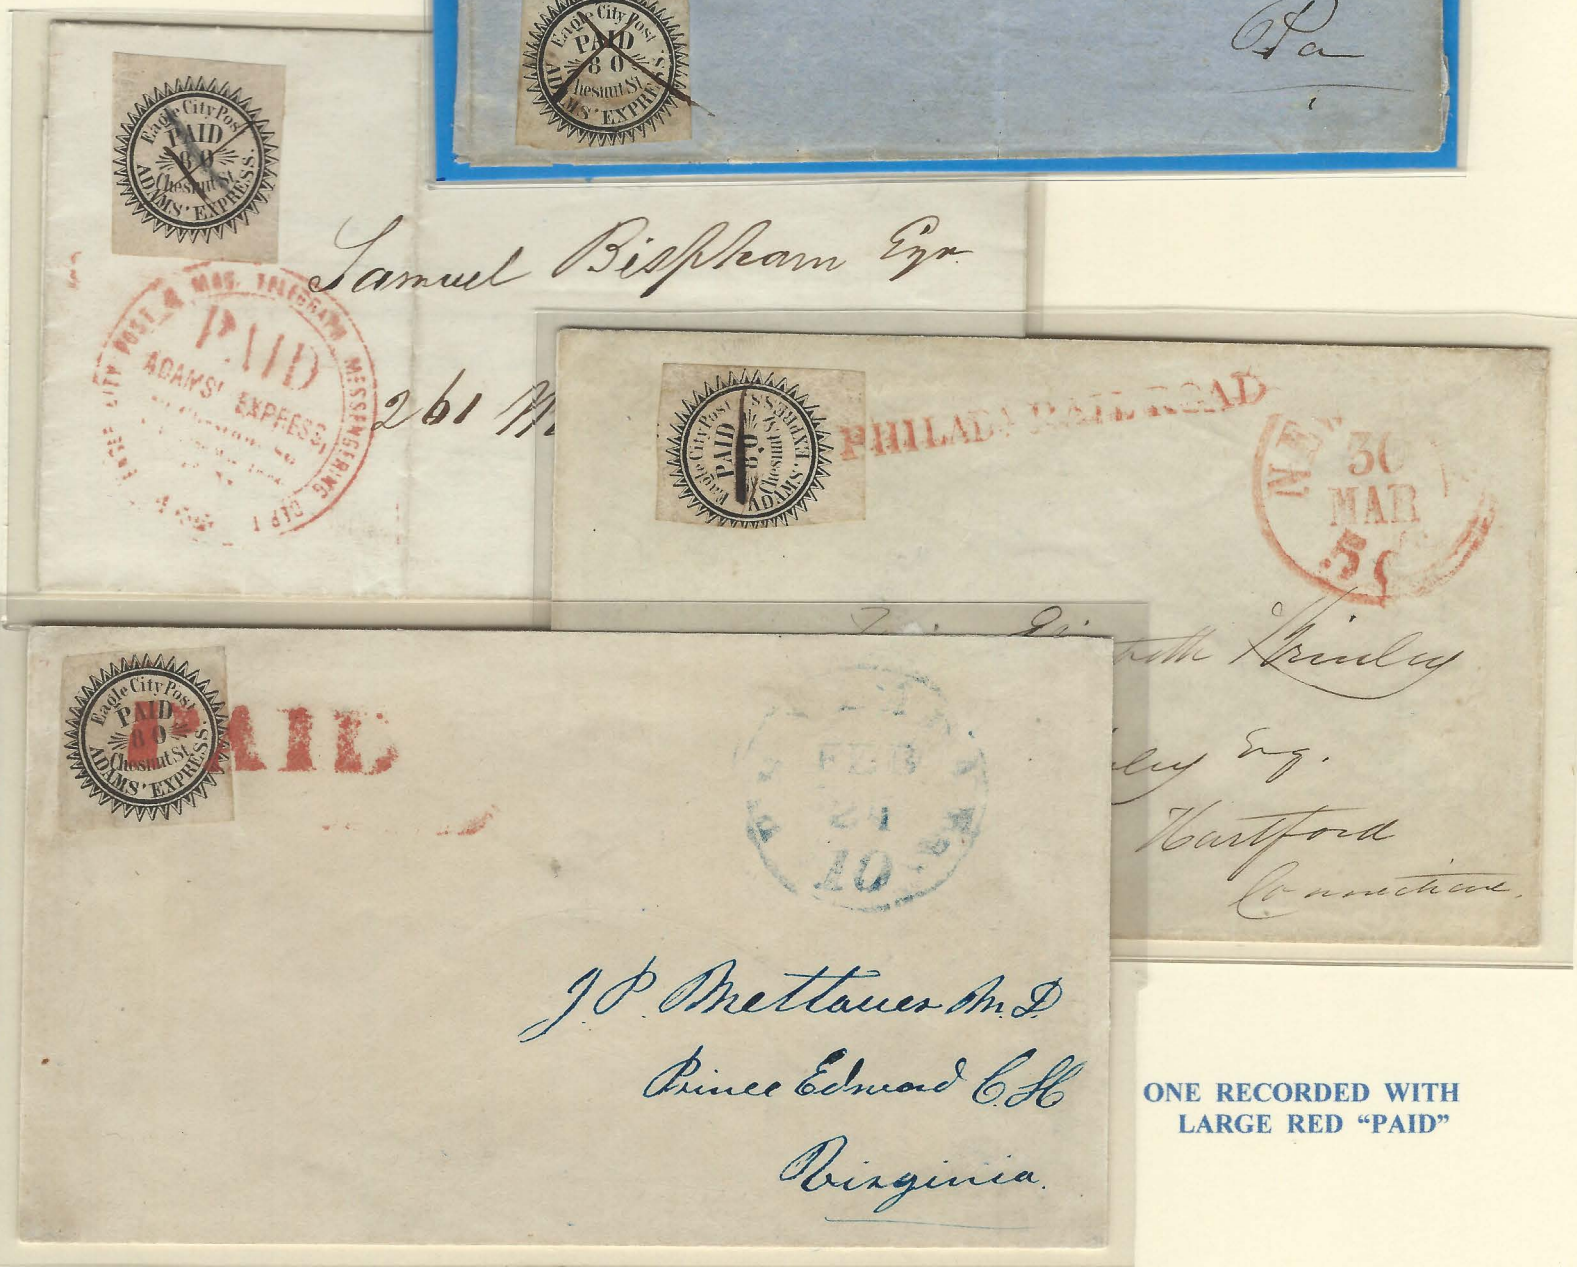 Eagle City Post
PAID
80
Chesnut St.
ADAMS' EXPRESS.
Pa
Eagle City Post
PAID
80
Chesnut St.
ADAMS' EXPRESS.
Samuel Bispham Eqr.
261
EAGLE CITY POST & MAG. TELEGRAPH MESSENGERING DEPT
PAID
ADAMS' EXPRESS,
Eagle City Post
PAID
80
Chesnut St.
ADAMS' EXPRESS.
PHILADA RAILROAD
30
MAR
Brinley
Esq.
Hartford
Connecticut.
Eagle City Post
PAID
80
Chesnut St.
ADAMS' EXPRESS.
PAID
FEB
24
10
J. P. Mettauer M. D.
Prince Edward C. H
Virginia.
ONE RECORDED WITH
LARGE RED “PAID”